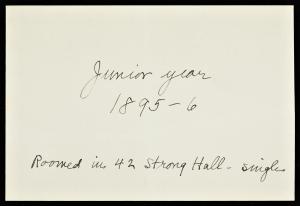 Junior year
1895-6
Roomed in 42 Strong Hall - single